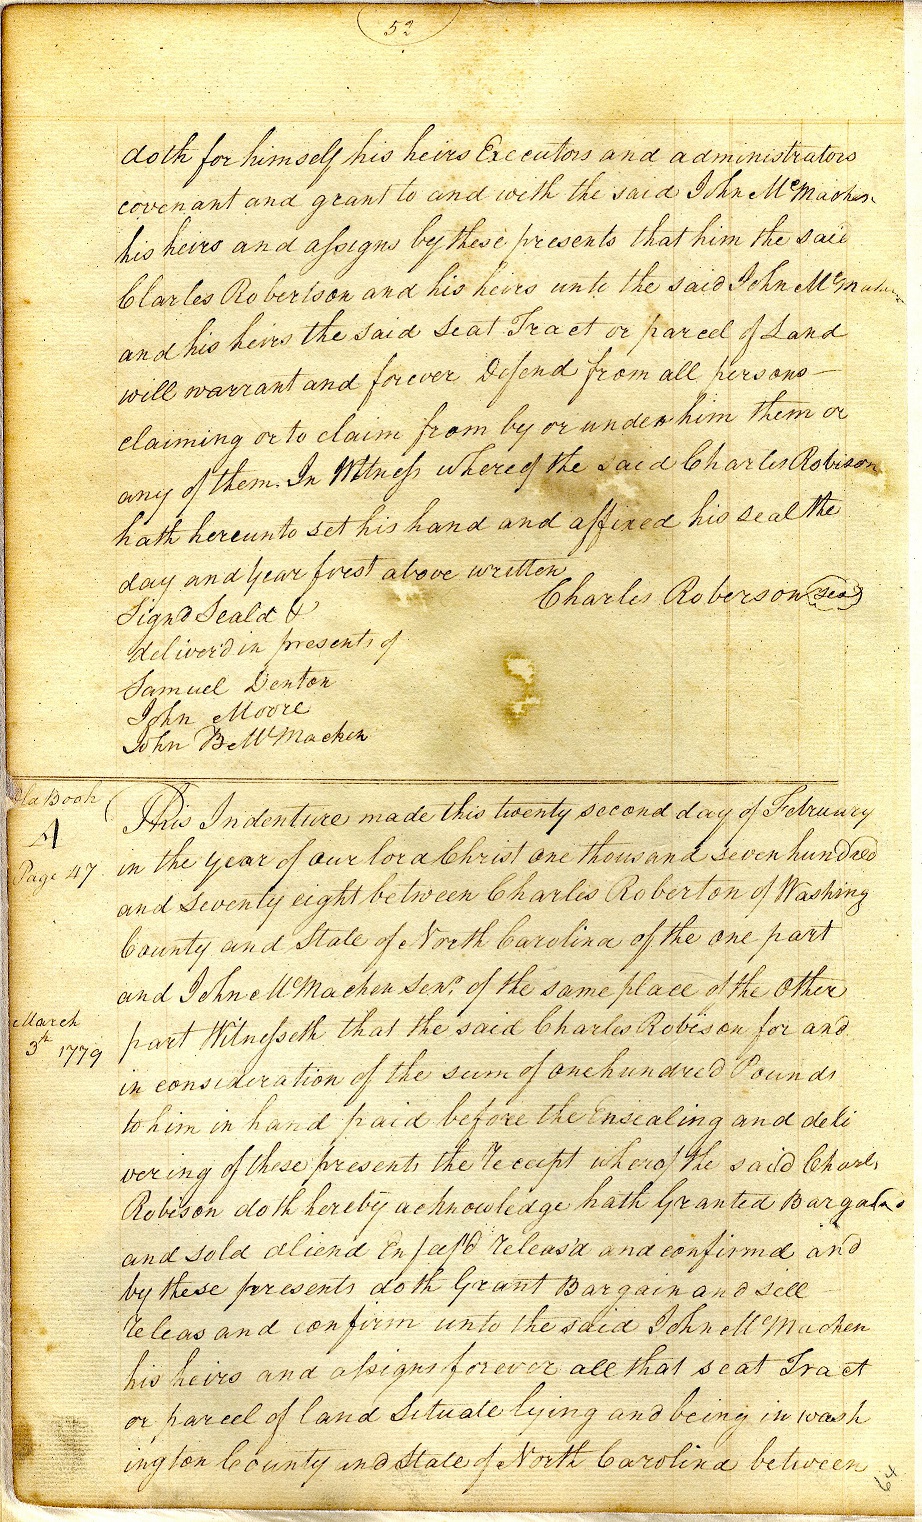 52
doth for himself his heirs Executors and administrators
covenant and grant to and with the said John McMachen
his heirs and assigns by these presents that him the said
Charles Robertson and his heirs unto the said John McMachen
and his heirs the said seat Tract or parcel of Land
will warrant and forever Defend from all persons —
claiming or to claim from by or under him them or
any of them. In Witness whereof the said Charles Robison
hath hereunto set his hand and affixed his seal the
day and year first above written
Charles Roberson seal
Signd Seald &
deliverd in presents of
Samuel Denton
John Moore
John B McMachen
Old Book
A
Page 47
This Indenture made this twenty second day of February
in the year of our lord Christ one thousand seven hundred
and seventy eight between Charles Roberton of Washing
County and State of North Carolina of the one part
and John McMachen Senr. of the same place of the Other
March
3th 1779
part Witnesseth that the said Charles Robison for and
in consideration of the sum of one hundred Pounds
to him in hand paid before the Ensealing and deli
vering of these presents the receipt wherof the said Charles
Robison doth hereby acknowledge hath Granted Bargaind
and sold aliend Enfeofd releas'd and confirmd and
by these presents doth Grant Bargain and sell
releas and confirm unto the said John McMachen
his heirs and assigns forever all that seat Tract
or parcel of land Situate lying and being in wash
ington County and State of North Carolina between
64